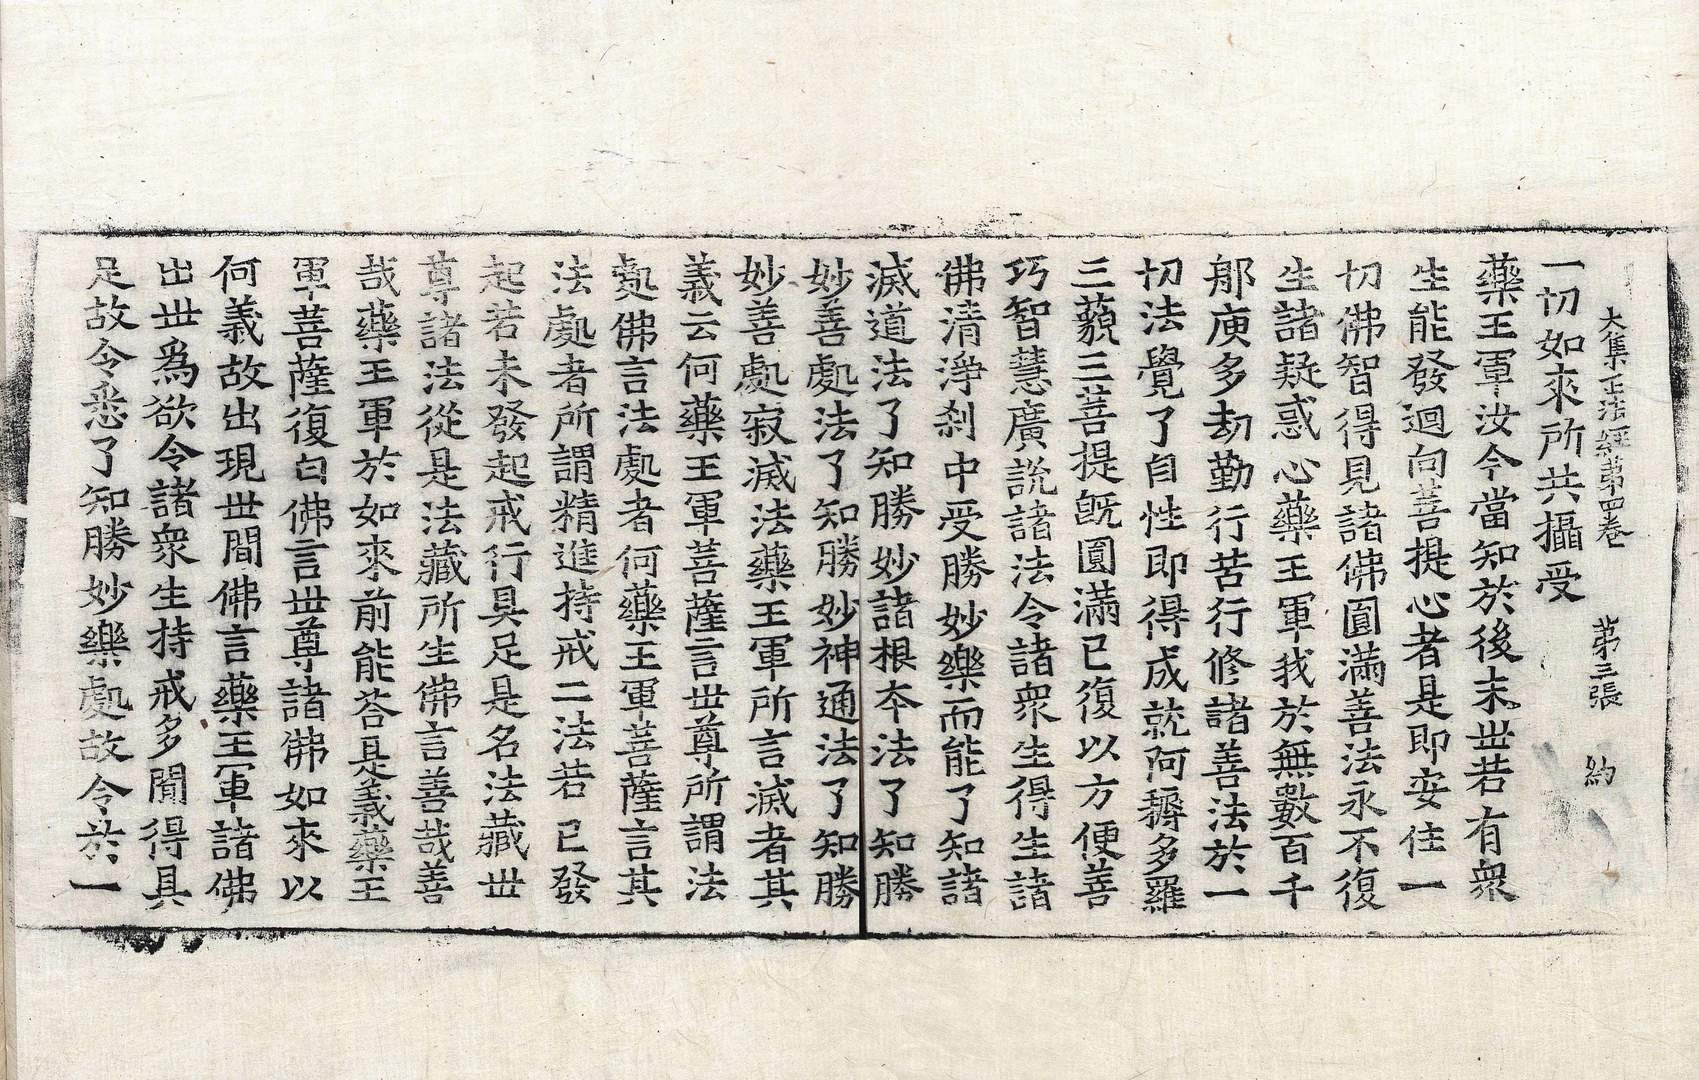 大集正法經第四卷 第三張 約
一切如來所共攝受
藥王軍汝今當知於後末世若有衆
生能發迴向菩提心者是即安住一
切佛智得見諸佛圓滿善法永不復
生諸疑惑心藥王軍我於無數百千
那庾多劫勤行苦行修諸善法於一
切法覺了自性即得成就阿耨多羅
三藐三菩提旣圓滿已復以方便善
巧智慧廣說諸法令諸衆生得生諸
佛清淨刹中受勝妙樂而能了知諸
滅道法了知勝妙諸根本法了知勝
妙善處法了知勝妙神通法了知勝
妙善處寂滅法藥王軍所言滅者其
義云何藥王軍菩薩言世尊所謂法
處佛言法處者何藥王軍菩薩言其
法處者所謂精進持戒二法若已發
起若未發起戒行具足是名法藏世
尊諸法從是法藏所生佛言善哉善
哉藥王軍於如來前能荅是義藥王
軍菩薩復白佛言世尊諸佛如來以
何義故出現世間佛言藥王軍諸佛
出世爲欲令諸衆生持戒多聞得具
足故令悉了知勝妙樂處故令於一